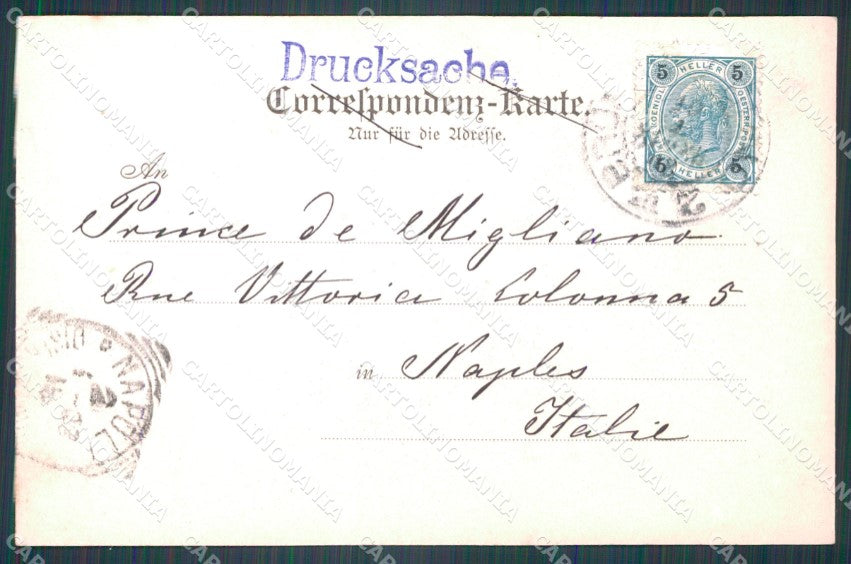 Drucksache.
Correspondenz-Karte.
Nur für die Adresse.
5 HELLER 5
5 HELLER 5
An
Prince de Migliano
Rue Vittoria Colonna 5
in Naples
Italie
NAPOLI
CARTOLINOMANIA